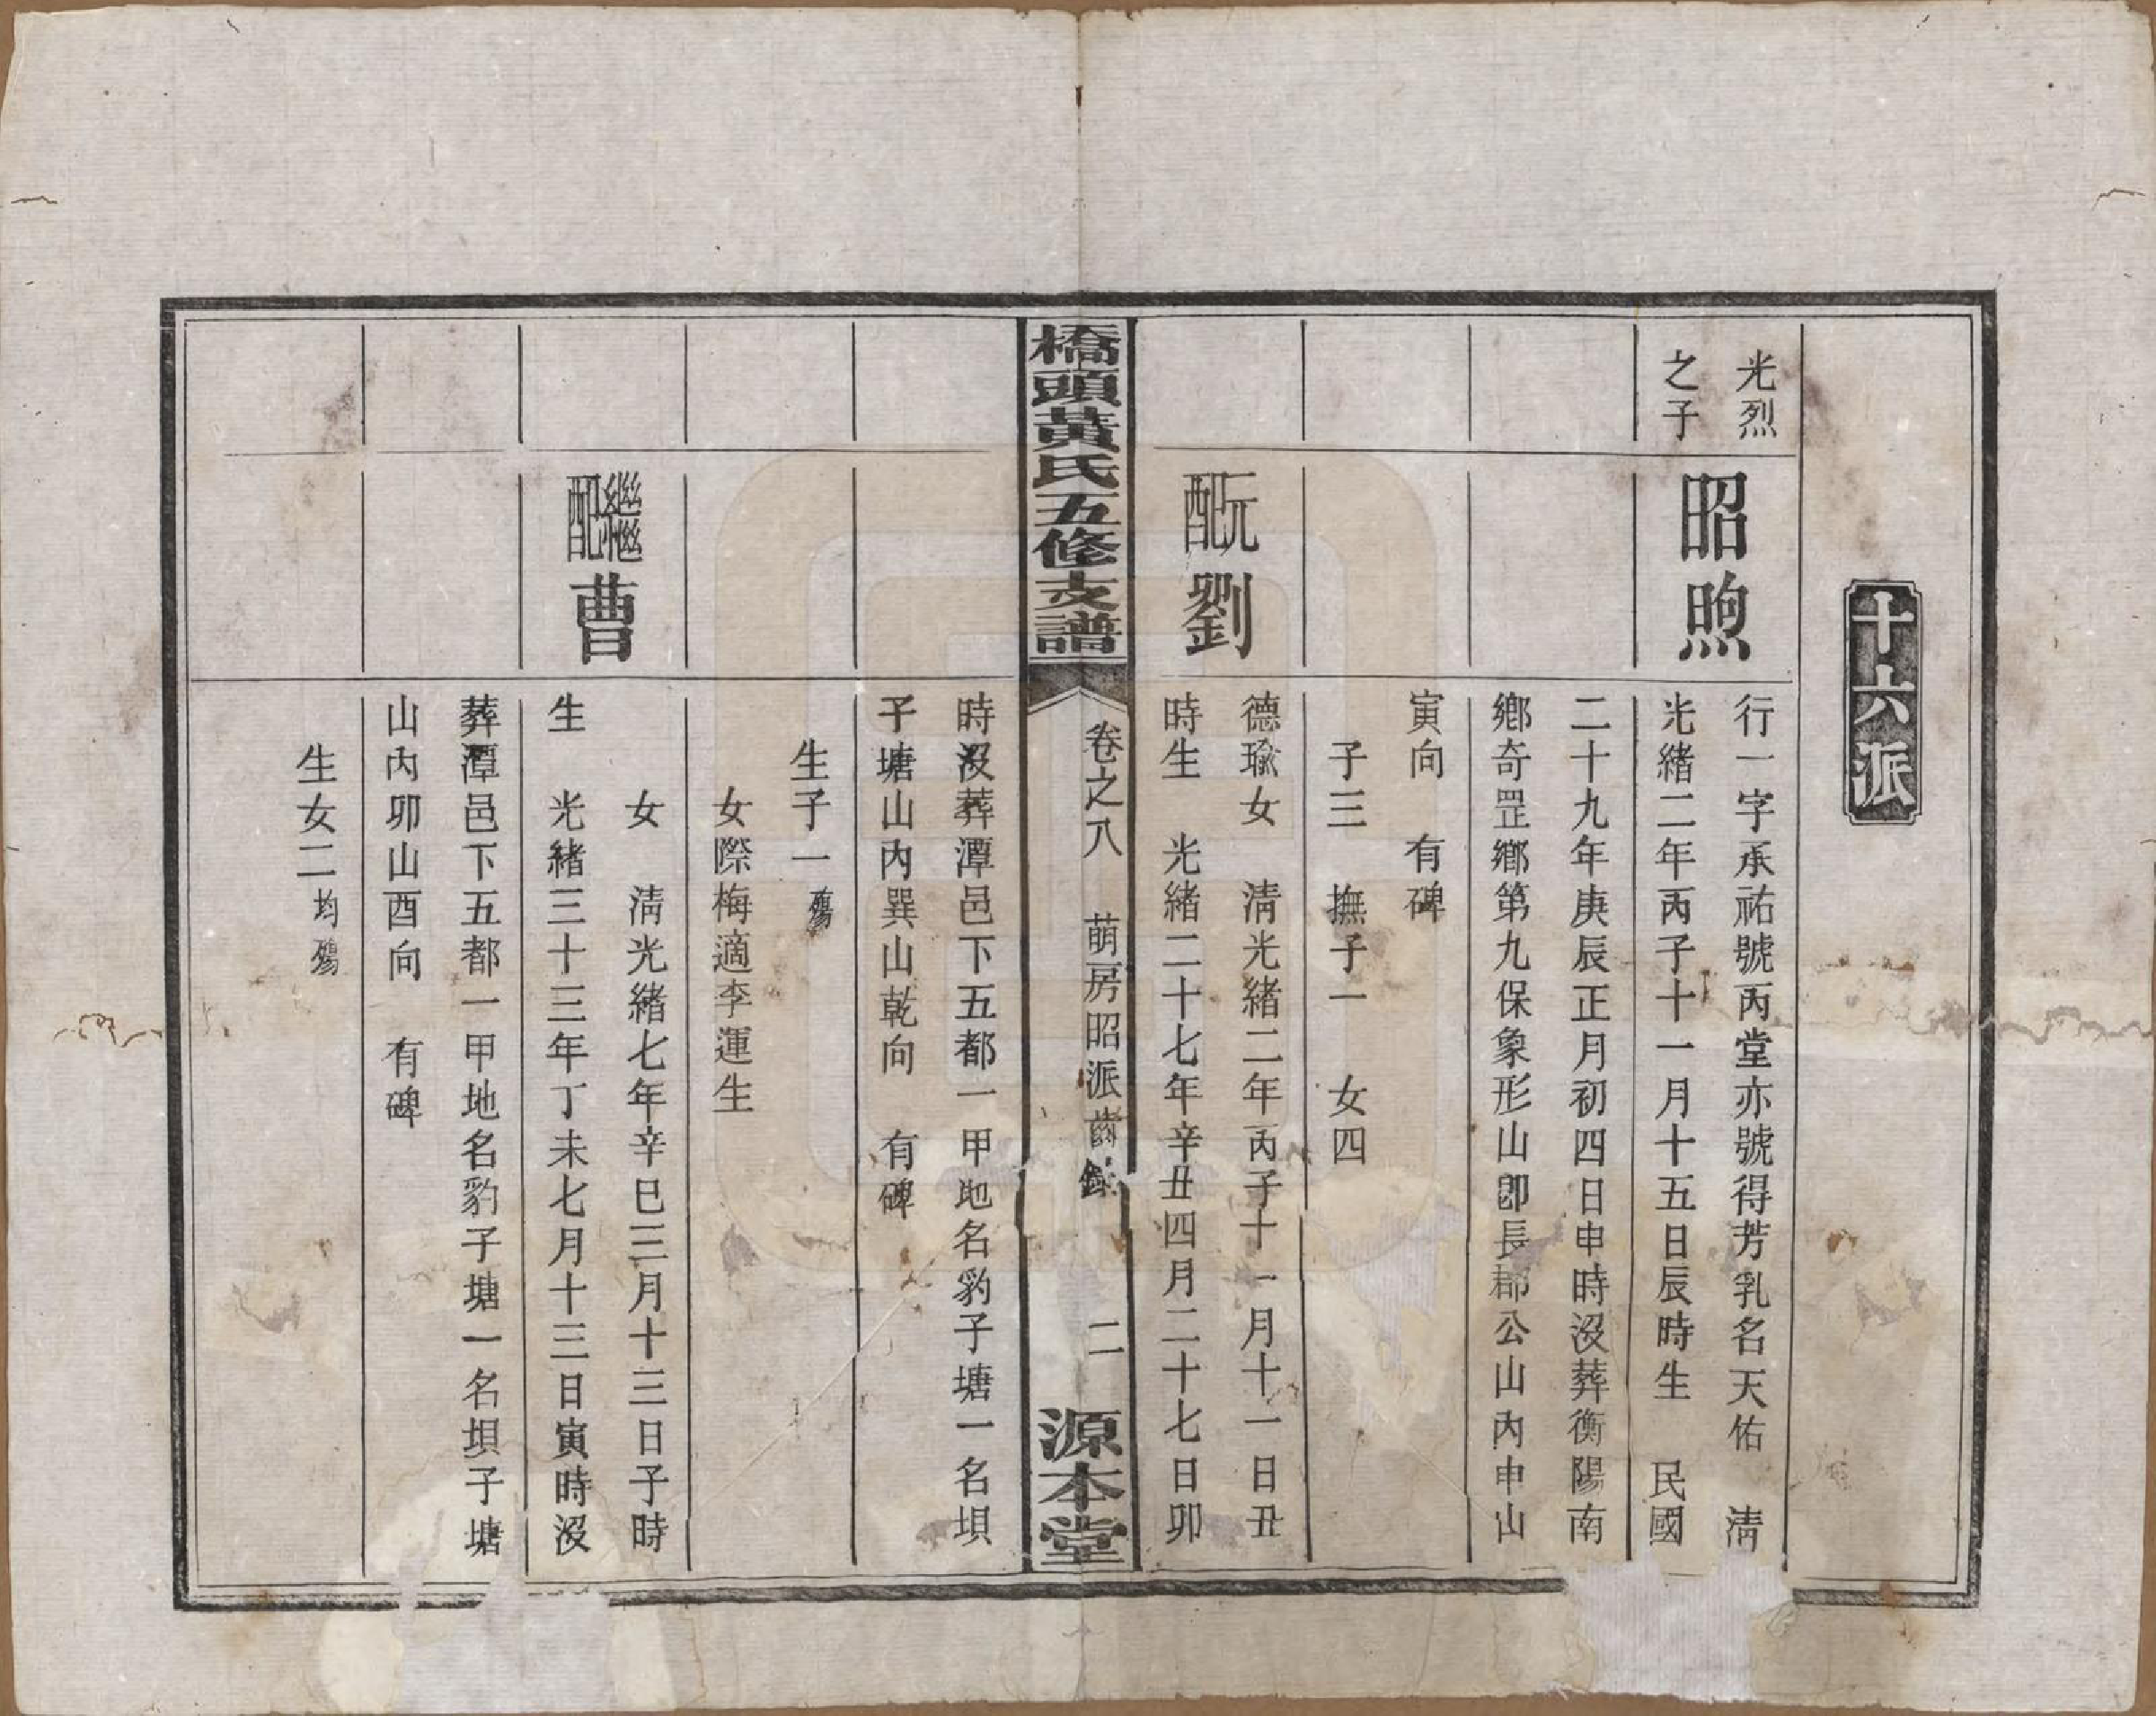 十六派
光烈
之子
昭煦
行一字承祐號丙堂亦號得芳乳名天佑 清
光緒二年丙子十一月十五日辰時生 民國
二十九年庚辰正月初四日申時沒葬衡陽南
鄉奇罡鄉第九保象形山卽長郡公山內申山
寅向 有碑
子三 撫子一 女四
元配
劉
德瑜女 清光緒二年丙子十一月十一日丑
時生 光緒二十七年辛丑四月二十七日卯
橋頭黃氏五修支譜
卷之八 萌房昭派齒錄 二
源本堂
時沒葬潭邑下五都一甲地名豹子塘一名垻
子塘山內巽山乾向 有碑
生子一 殤
女際梅適李運生
繼配
曹
女 清光緒七年辛巳三月十三日子時
生 光緒三十三年丁未七月十三日寅時沒
葬潭邑下五都一甲地名豹子塘一名垻子塘
山內卯山酉向 有碑
生女二均殤